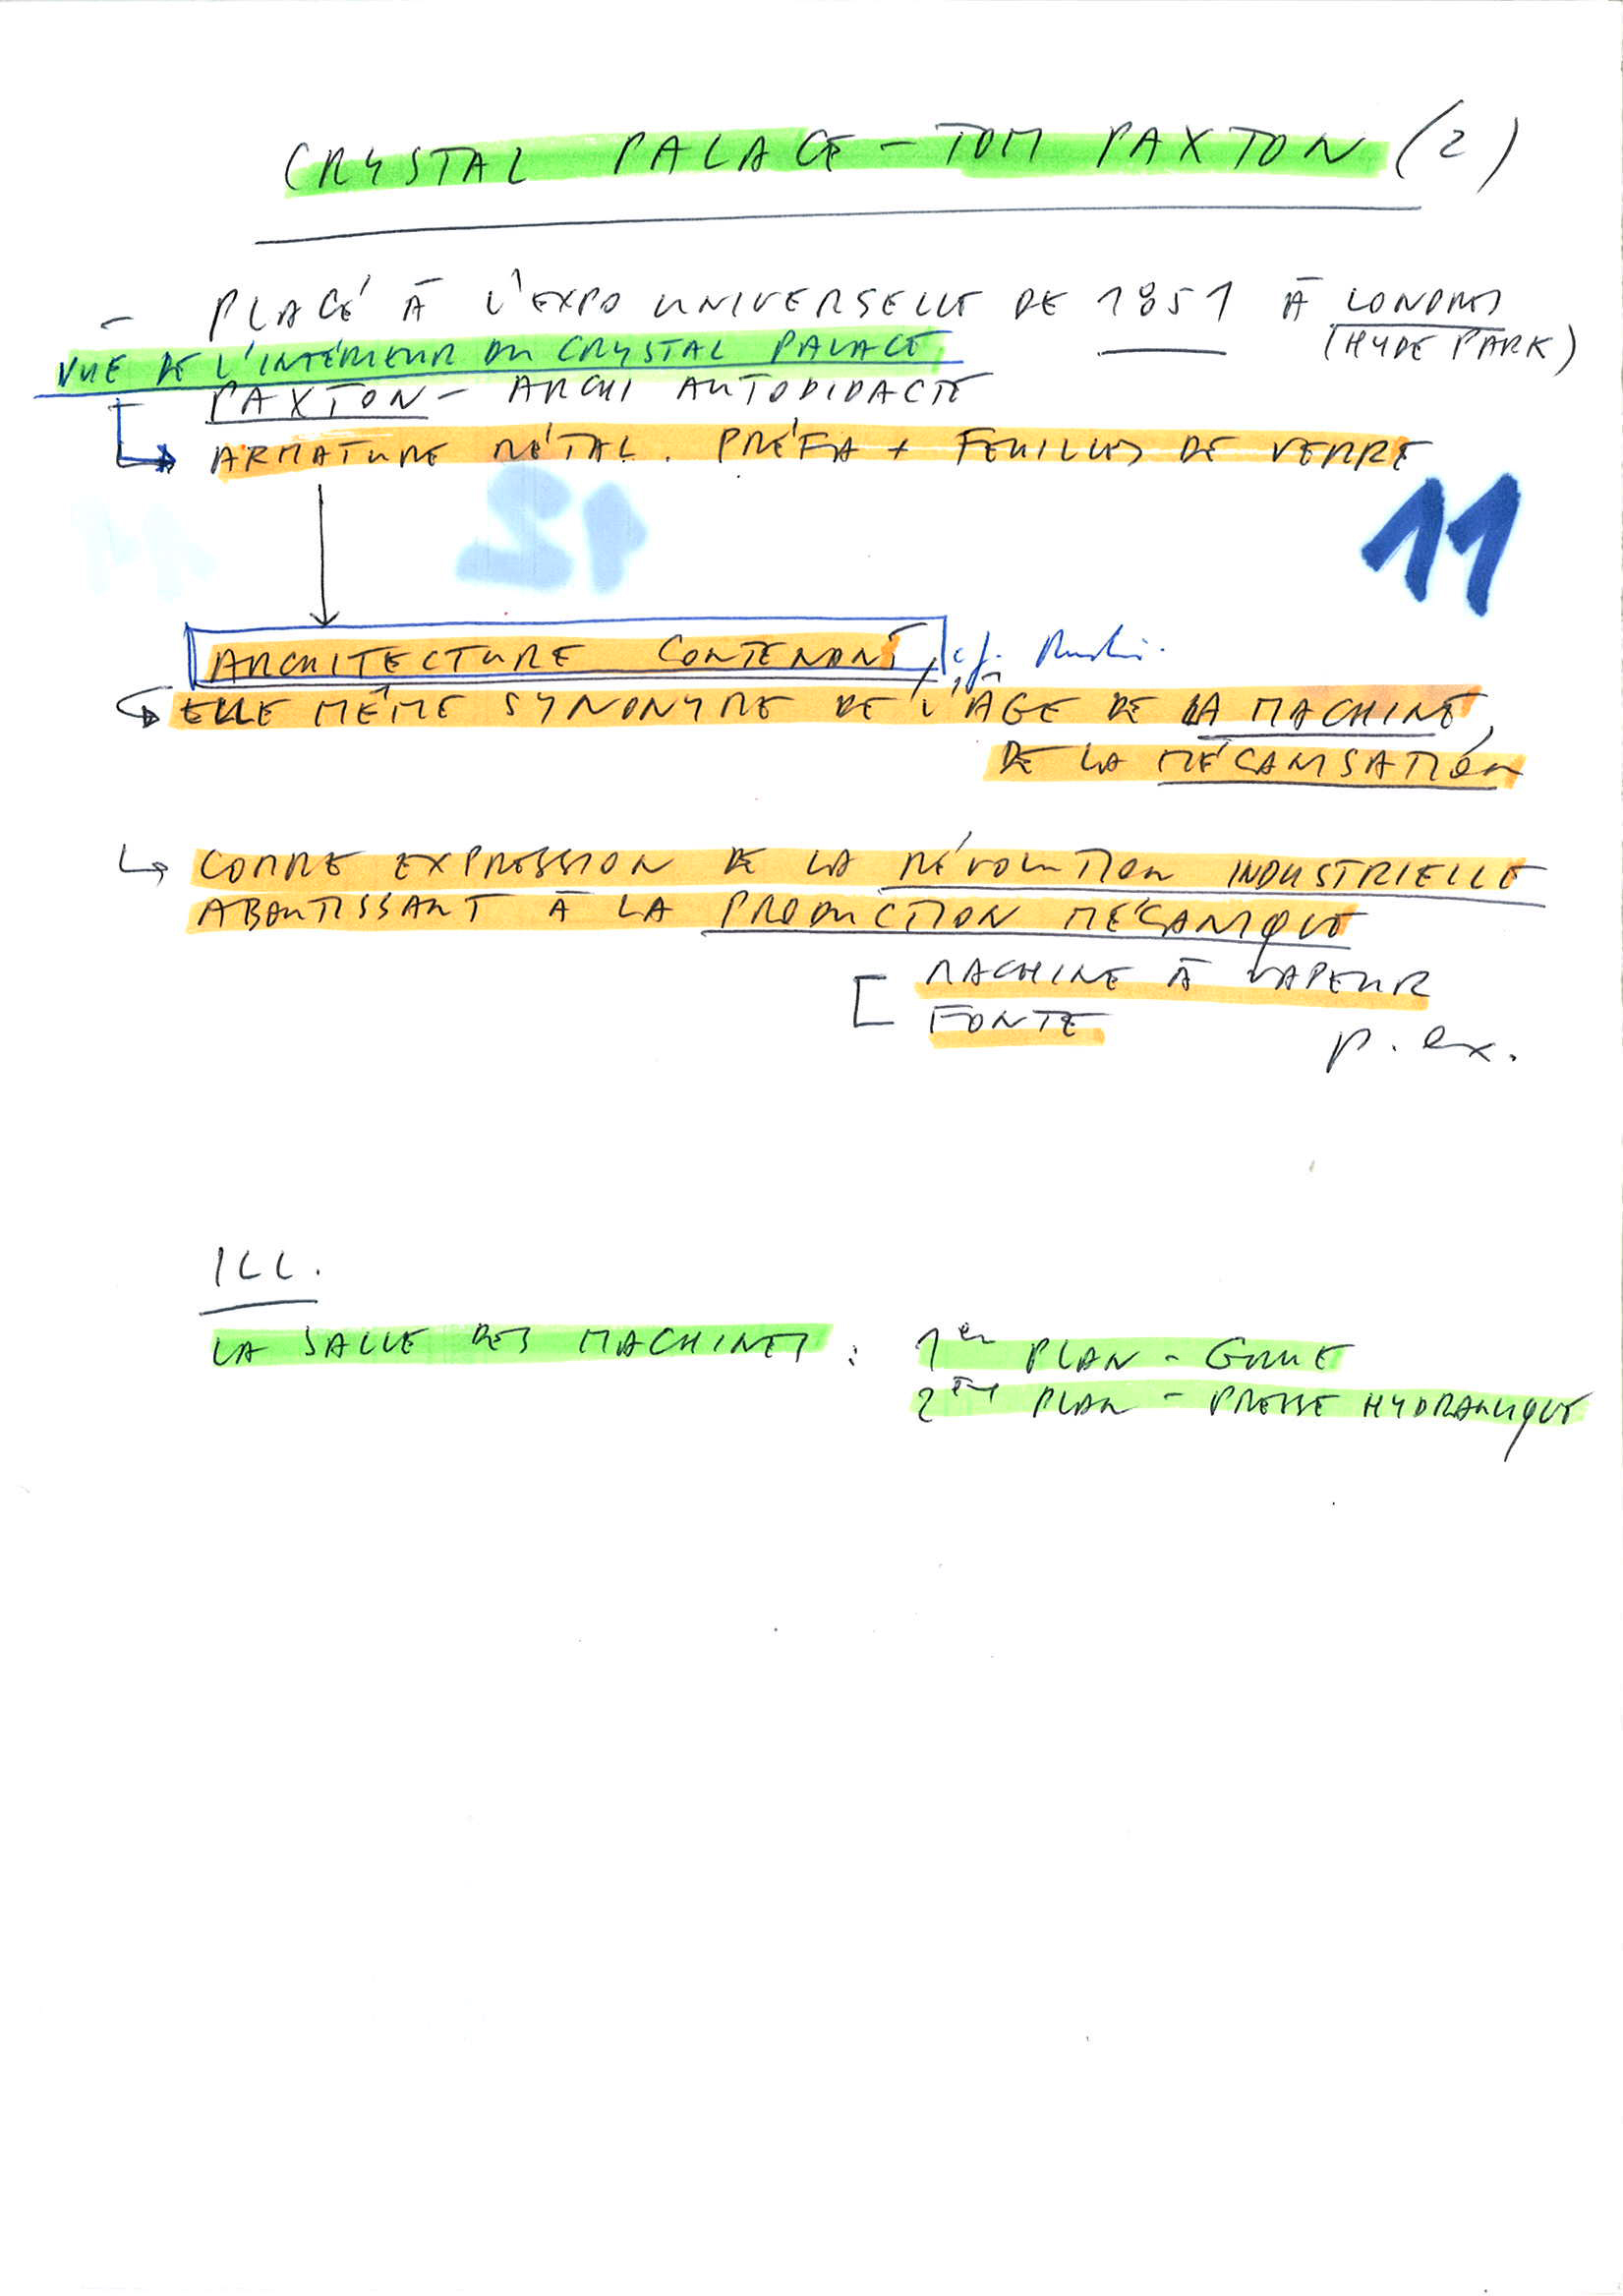 CRYSTAL PALACE – TOM PAXTON (2)
– PLACÉ À L'EXPO UNIVERSELLE DE 1851 À LONDRES
(HYDE PARK)
VUE DE L'INTÉRIEUR DU CRYSTAL PALACE
PAXTON – ARCHI AUTODIDACTE
ARMATURE MÉTAL. PRÉFA + FEUILLES DE VERRE
11
ARCHITECTURE CONTENANT, cf.
ELLE MÊME SYNONYME DE L'AGE DE LA MACHINE,
DE LA MÉCANISATION
COMME EXPRESSION DE LA RÉVOLUTION INDUSTRIELLE
ABOUTISSANT À LA PRODUCTION MÉCANIQUE
[ MACHINE À VAPEUR
FONTE
p. ex.
ILL.
LA SALLE DES MACHINES : 1er PLAN – GRUE
2ème PLAN – PRESSE HYDRAULIQUE